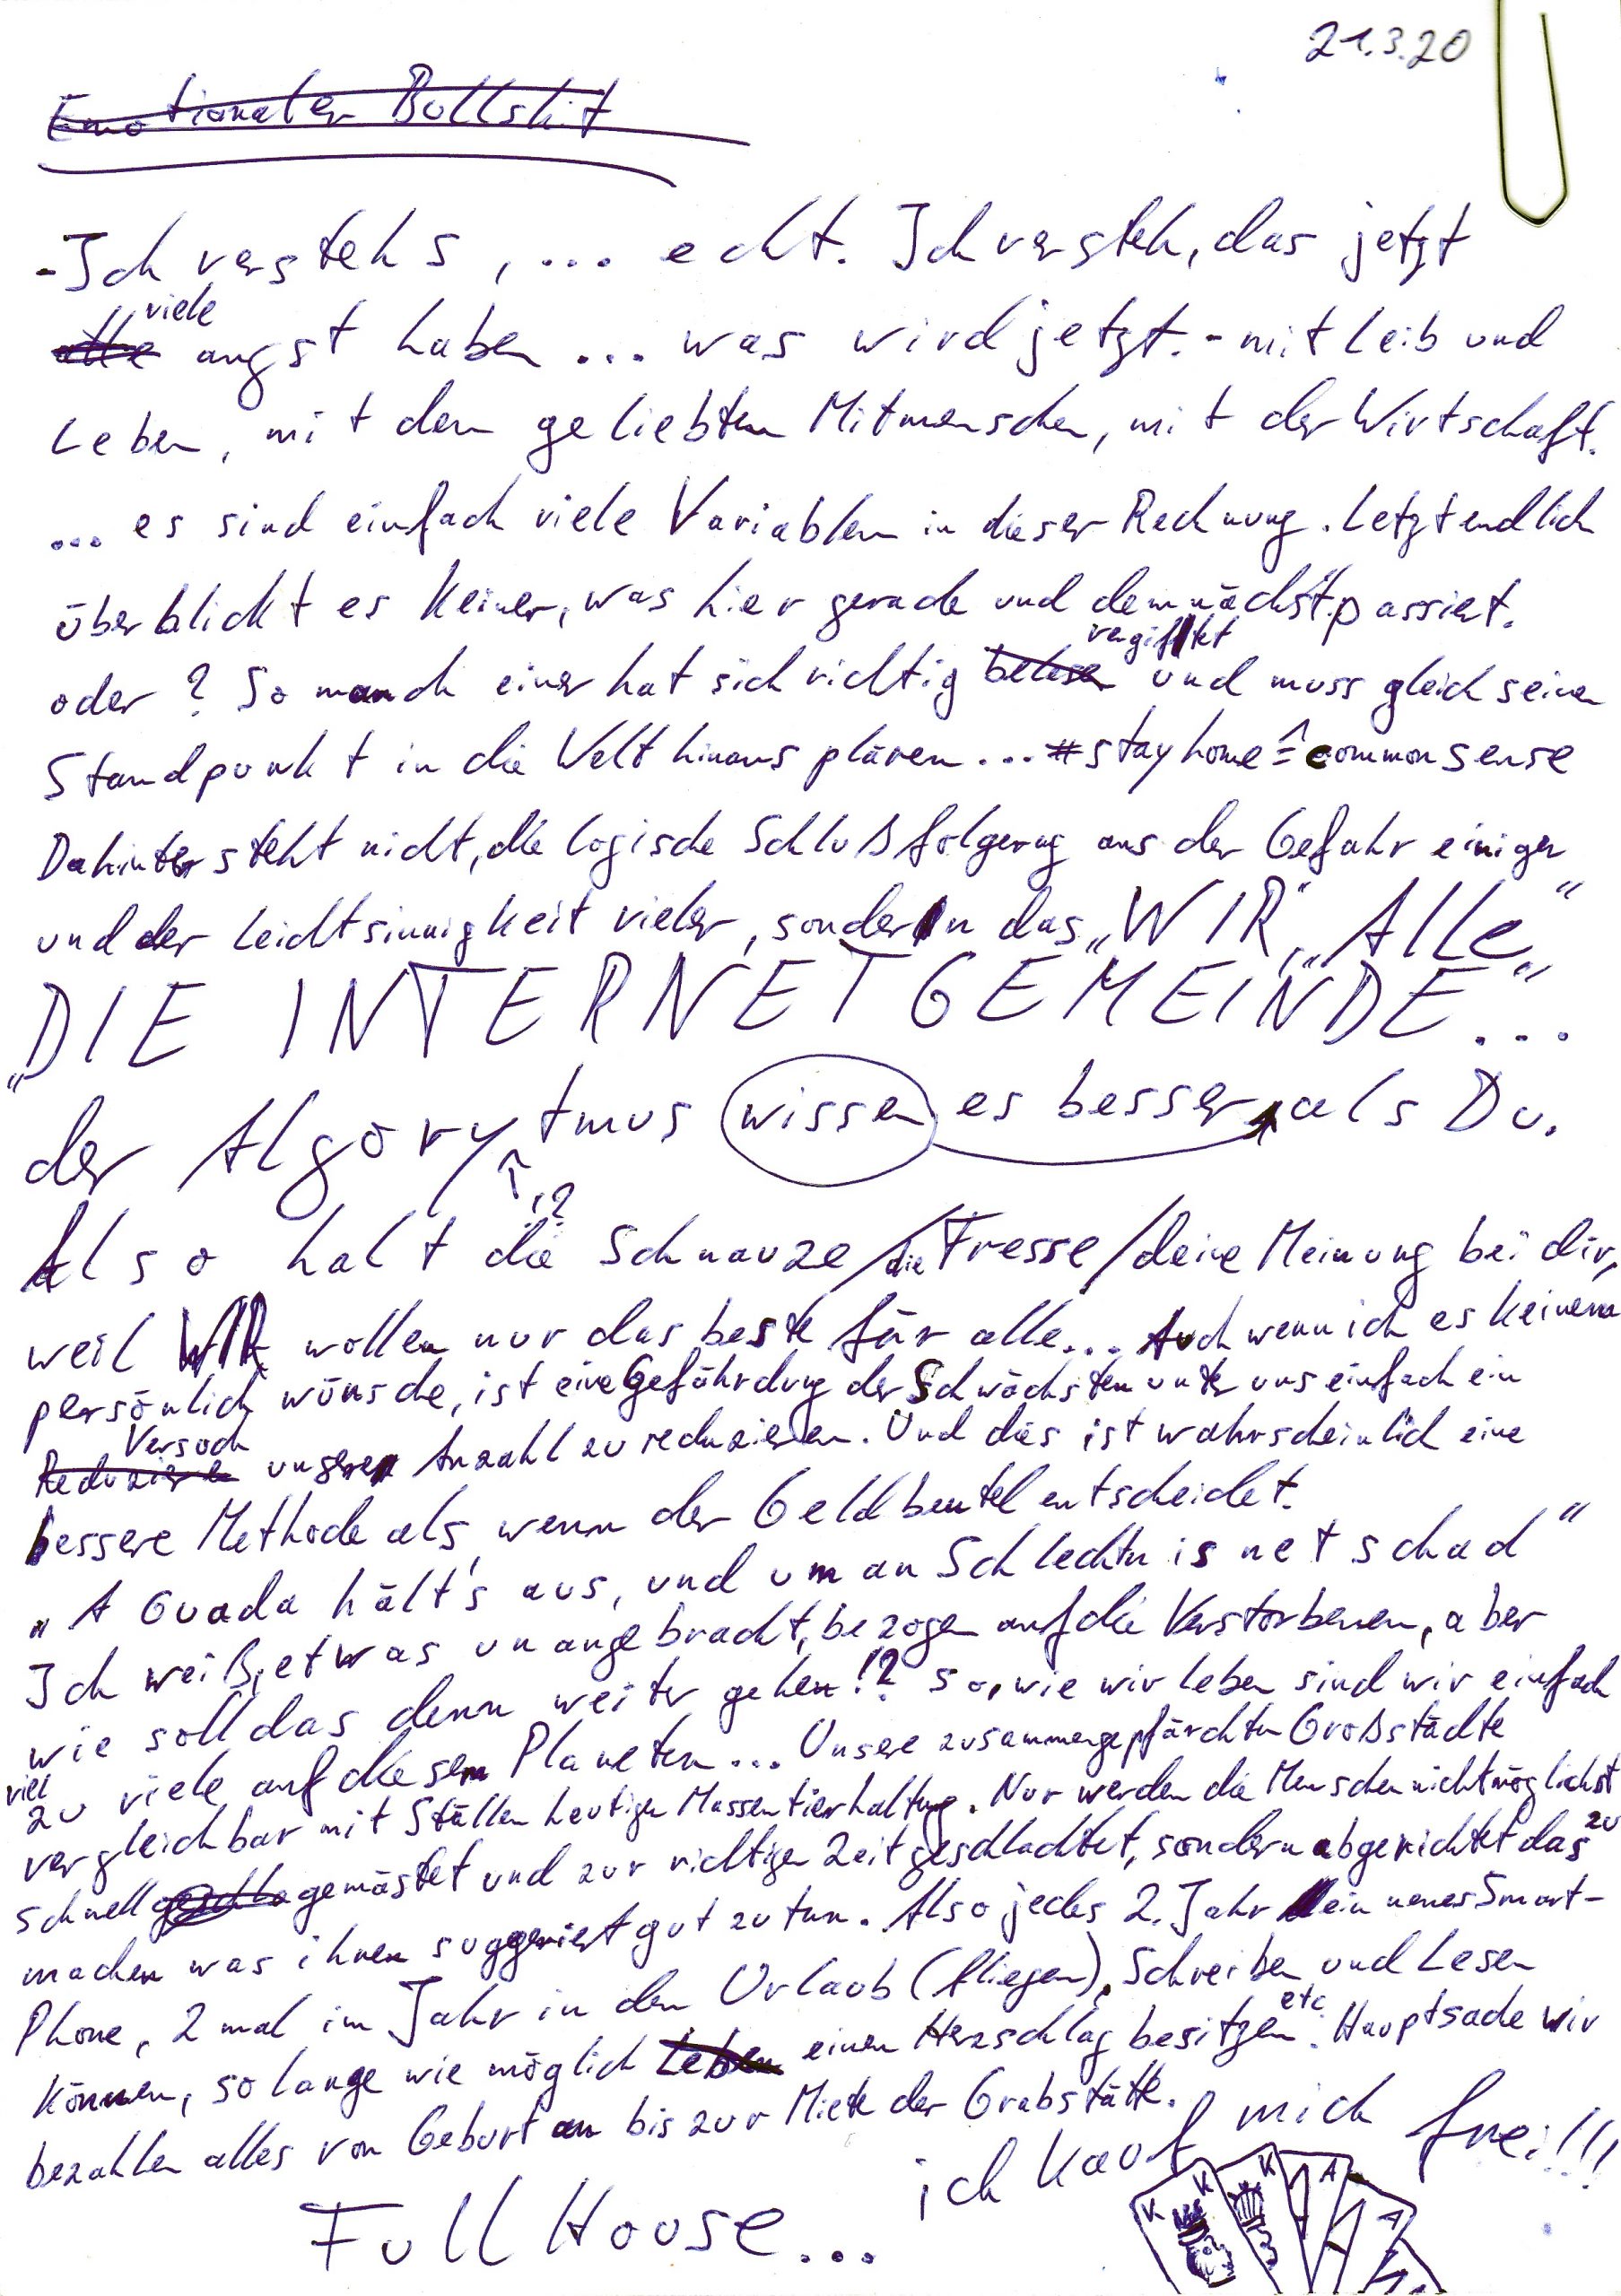 21.3.20
Emotionaler Bullshit
-Ich verstehs, ... echt. Ich versteh, das jetzt
viele
alle angst haben ... was wird jetzt.- mit Leib und
Leben, mit den geliebten Mitmenschen, mit der Wirtschaft.
... es sind einfach viele Variablen in dieser Rechnung. Letztendlich
überblickt es keiner, was hier gerade und demnächst passiert.
vergiftet
oder? So manch einer hat sich richtig belesen und muss gleich seinen
Standpunkt in die Welt hinaus plären... #stayhome ≙ common sense
Dahinter steht nicht, die logische Schlußfolgerung aus der Gefahr einiger
und der Leichtsinnigkeit vieler, sondern das „WIR", „Alle"
„DIE INTERNETGEMEINDE"...
der Algorytmus wissen es besser als Du.
↑,?
Also halt die Schnauze/die Fresse/deine Meinung bei dir,
weil WIR wollen nur das beste für alle... Auch wenn ich es keinem
persönlich wünsche, ist eine Gefährdung der Schwächsten unter uns einfach ein
Versuch
Reduziere unsere Anzahl zu reduzieren. Und dies ist wahrscheinlich eine
bessere Methode als, wenn der Geldbeutel entscheidet.
„A Guada hält's aus, und um an Schlechtn is net schad"
Ich weiß, etwas unangebracht, bezogen auf die Verstorbenen, aber
wie soll das denn weiter gehen!? So, wie wir leben sind wir einfach
viel
zu viele auf diesem Planeten... Unsere zusammengepfärchten Großstädte
vergleichbar mit Ställen heutiger Massentierhaltung. Nur werden die Menschen nicht möglichst
schnell gemästet und zur richtigen Zeit geschlachtet, sondern abgerichtet das zu
machen was ihnen suggeriert gut zu tun. Also jedes 2. Jahr ein neues Smart-
Phone, 2 mal im Jahr in den Urlaub (fliegen), Schreiben und Lesen
können, so lange wie möglich Leben einen Herzschlag besitzen etc. Hauptsade wir
bezahlen alles von Geburt an bis zur Miete der Grabstätte.
ich kauf mich frei!!!
Full House...
K K K A A